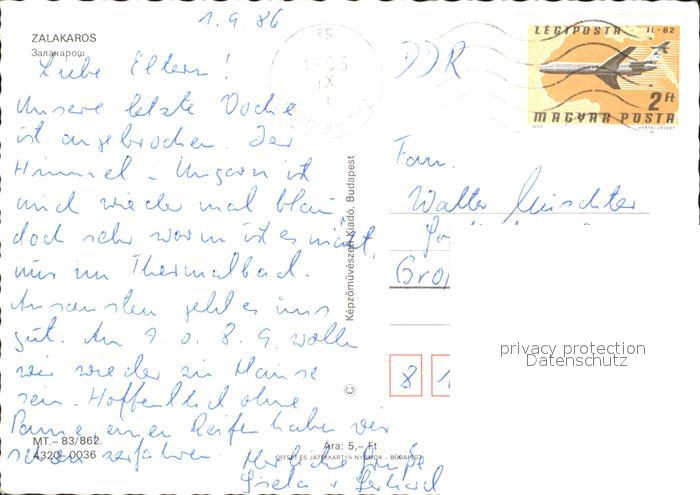 1.9.86
ZALAKAROS
Залакарош
Liebe Eltern!
Unsere letzte Woche
ist angebrochen. Der
Himmel - Ungarn ist
und wieder mal blau
doch sehr warm ist es nicht,
nur im Thermalbad.
Ansonsten geht es uns
gut. Am 7. o. 8. 9. wollen
wir wieder zu Hause
sein. Hoffentlich ohne
Panne, einen Reifen haben wir
schon zerfahren.
Herzliche Grüße
Gisela u. Gerhard
MT.– 83/862.
4320 0036
Ára: 5,– Ft
OFFSET ÉS JÁTÉKKÁRTYA NYOMDA – BUDAPEST
© Képzőművészeti Kiadó, Budapest
DDR
LÉGIPOSTA IL-62
2 Ft
MAGYAR POSTA
Fam.
Walter
8 1
privacy protection
Datenschutz